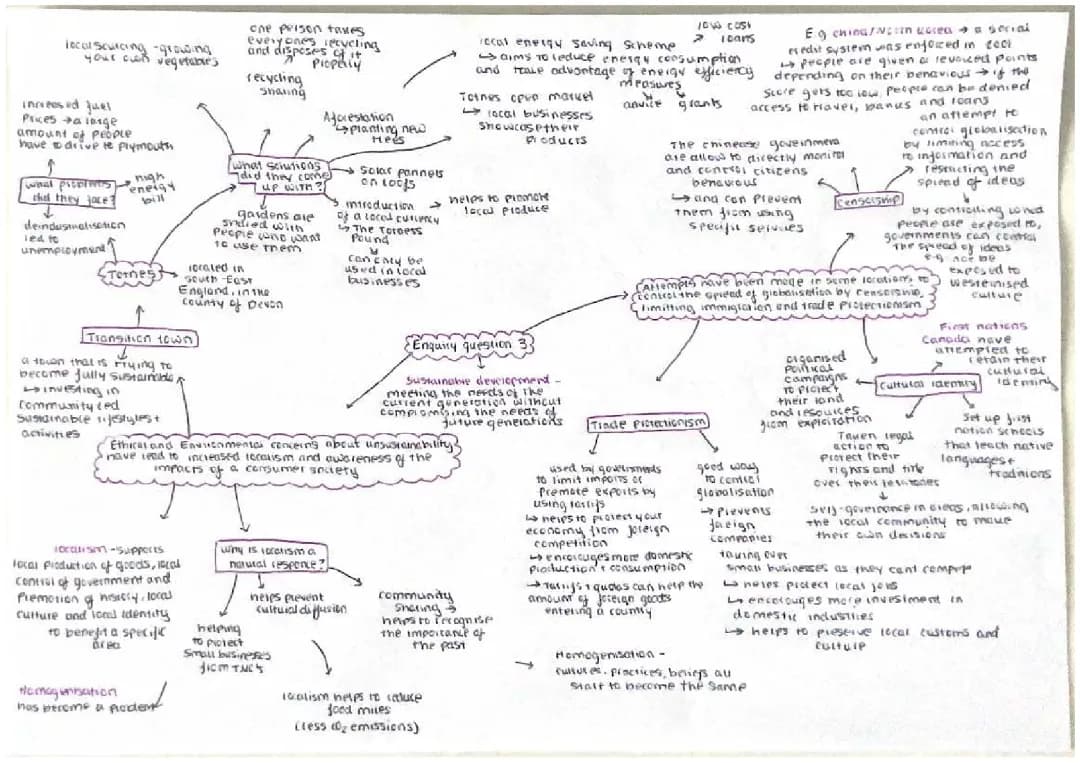 local sourcing - growing
your own vegetables
one person takes
everyones recycling
and disposes of it
properly
recycling
sharing
local energy saving scheme
↳ aims to reduce energy consumption
and take advantage of energy efficiency
measures
low cost
loans
advice
grants
E.g China/North Korea → a social
credit system was enforced in
↳ people are given a revoiced points
depending on their behavious → if the
score gets too low, people can be denied
access to travel, banks and loans
increased fuel
prices → a large
amount of people
have to drive to plymouth
Afforestation
↳ planting new
trees
Totnes open market
↳ local businesses
showcase their
products
an attempt to
control globalisation
by limiting access
to information and
restricting the
spread of ideas
The chinease government
are allow to directly monitor
and control citizens
behavious
↳ and can prevent
them from using
specific services
What problems
did they face?
high
energy
bill
What solutions
did they come
up with?
Solar pannels
on roofs
censorship
deindustrialisation
led to
unemployment
gardens are
shared with
people who want
to use them
introduction
of a local currency
↳ The Totness
Pound
can only be
used in local
businesses
helps to promote
local produce
by controlling what
people are exposed to,
governments can control
the spread of ideas
e.g. not be
exposed to
westernised
culture
Totnes
located in
south-East
England, in the
county of Devon
Attempts have been made in some locations to
control the spread of globalisation by censorship,
limitting immigration and trade protectionism
Transition town
Enquiry question 3
First nations
Canada have
attempted to
retain their
cultural
identity
a town that is trying to
become fully sustainable
↳ investing in
community led
sustainable lifestyles +
activities
Sustainable development -
meeting the needs of the
current generation without
compromising the needs of
future generations
organised
political
campaigns
to protect
their land
and resources
from exploitation
cultural identity
Trade protectionism
Taken legal
action to
protect their
rights and title
over their territories
Set up first
nation schools
that teach native
languages +
traditions
Ethical and Environmental concerns about unsustainability
have lead to increased localism and awareness of the
impacts of a consumer society
used by governments
to limit imports or
promote exports by
using tariffs
↳ helps to protect your
economy from foreign
competition
↳ encourages more domestic
production + consumption
→ Tariffs + quotas can help the
amount of foreign goods
entering a country
good way
to control
globalisation
→ prevents
foreign
companies
taking over
small businesses as they cant compete
↳ helps protect local jobs
↳ encourages more investment in
domestic industries
↳ helps to preserve local customs and
culture
Self-governance in areas, allowing
the local community to make
their own decisions
localism - supports
local production of goods, local
control of government and
promotion of history, local
culture and local identity
to benefit a specific
area
Why is localism a
natural responce?
helps prevent
cultural diffusion
community
sharing →
helps to recognise
the importance of
the past
helping
to protect
small businesses
from TNC's
Homogenisation
has become a problem
localism helps to reduce
food miles
(less CO₂ emissions)
→ Homogenisation -
cultures, practices, beliefs all
start to become the same